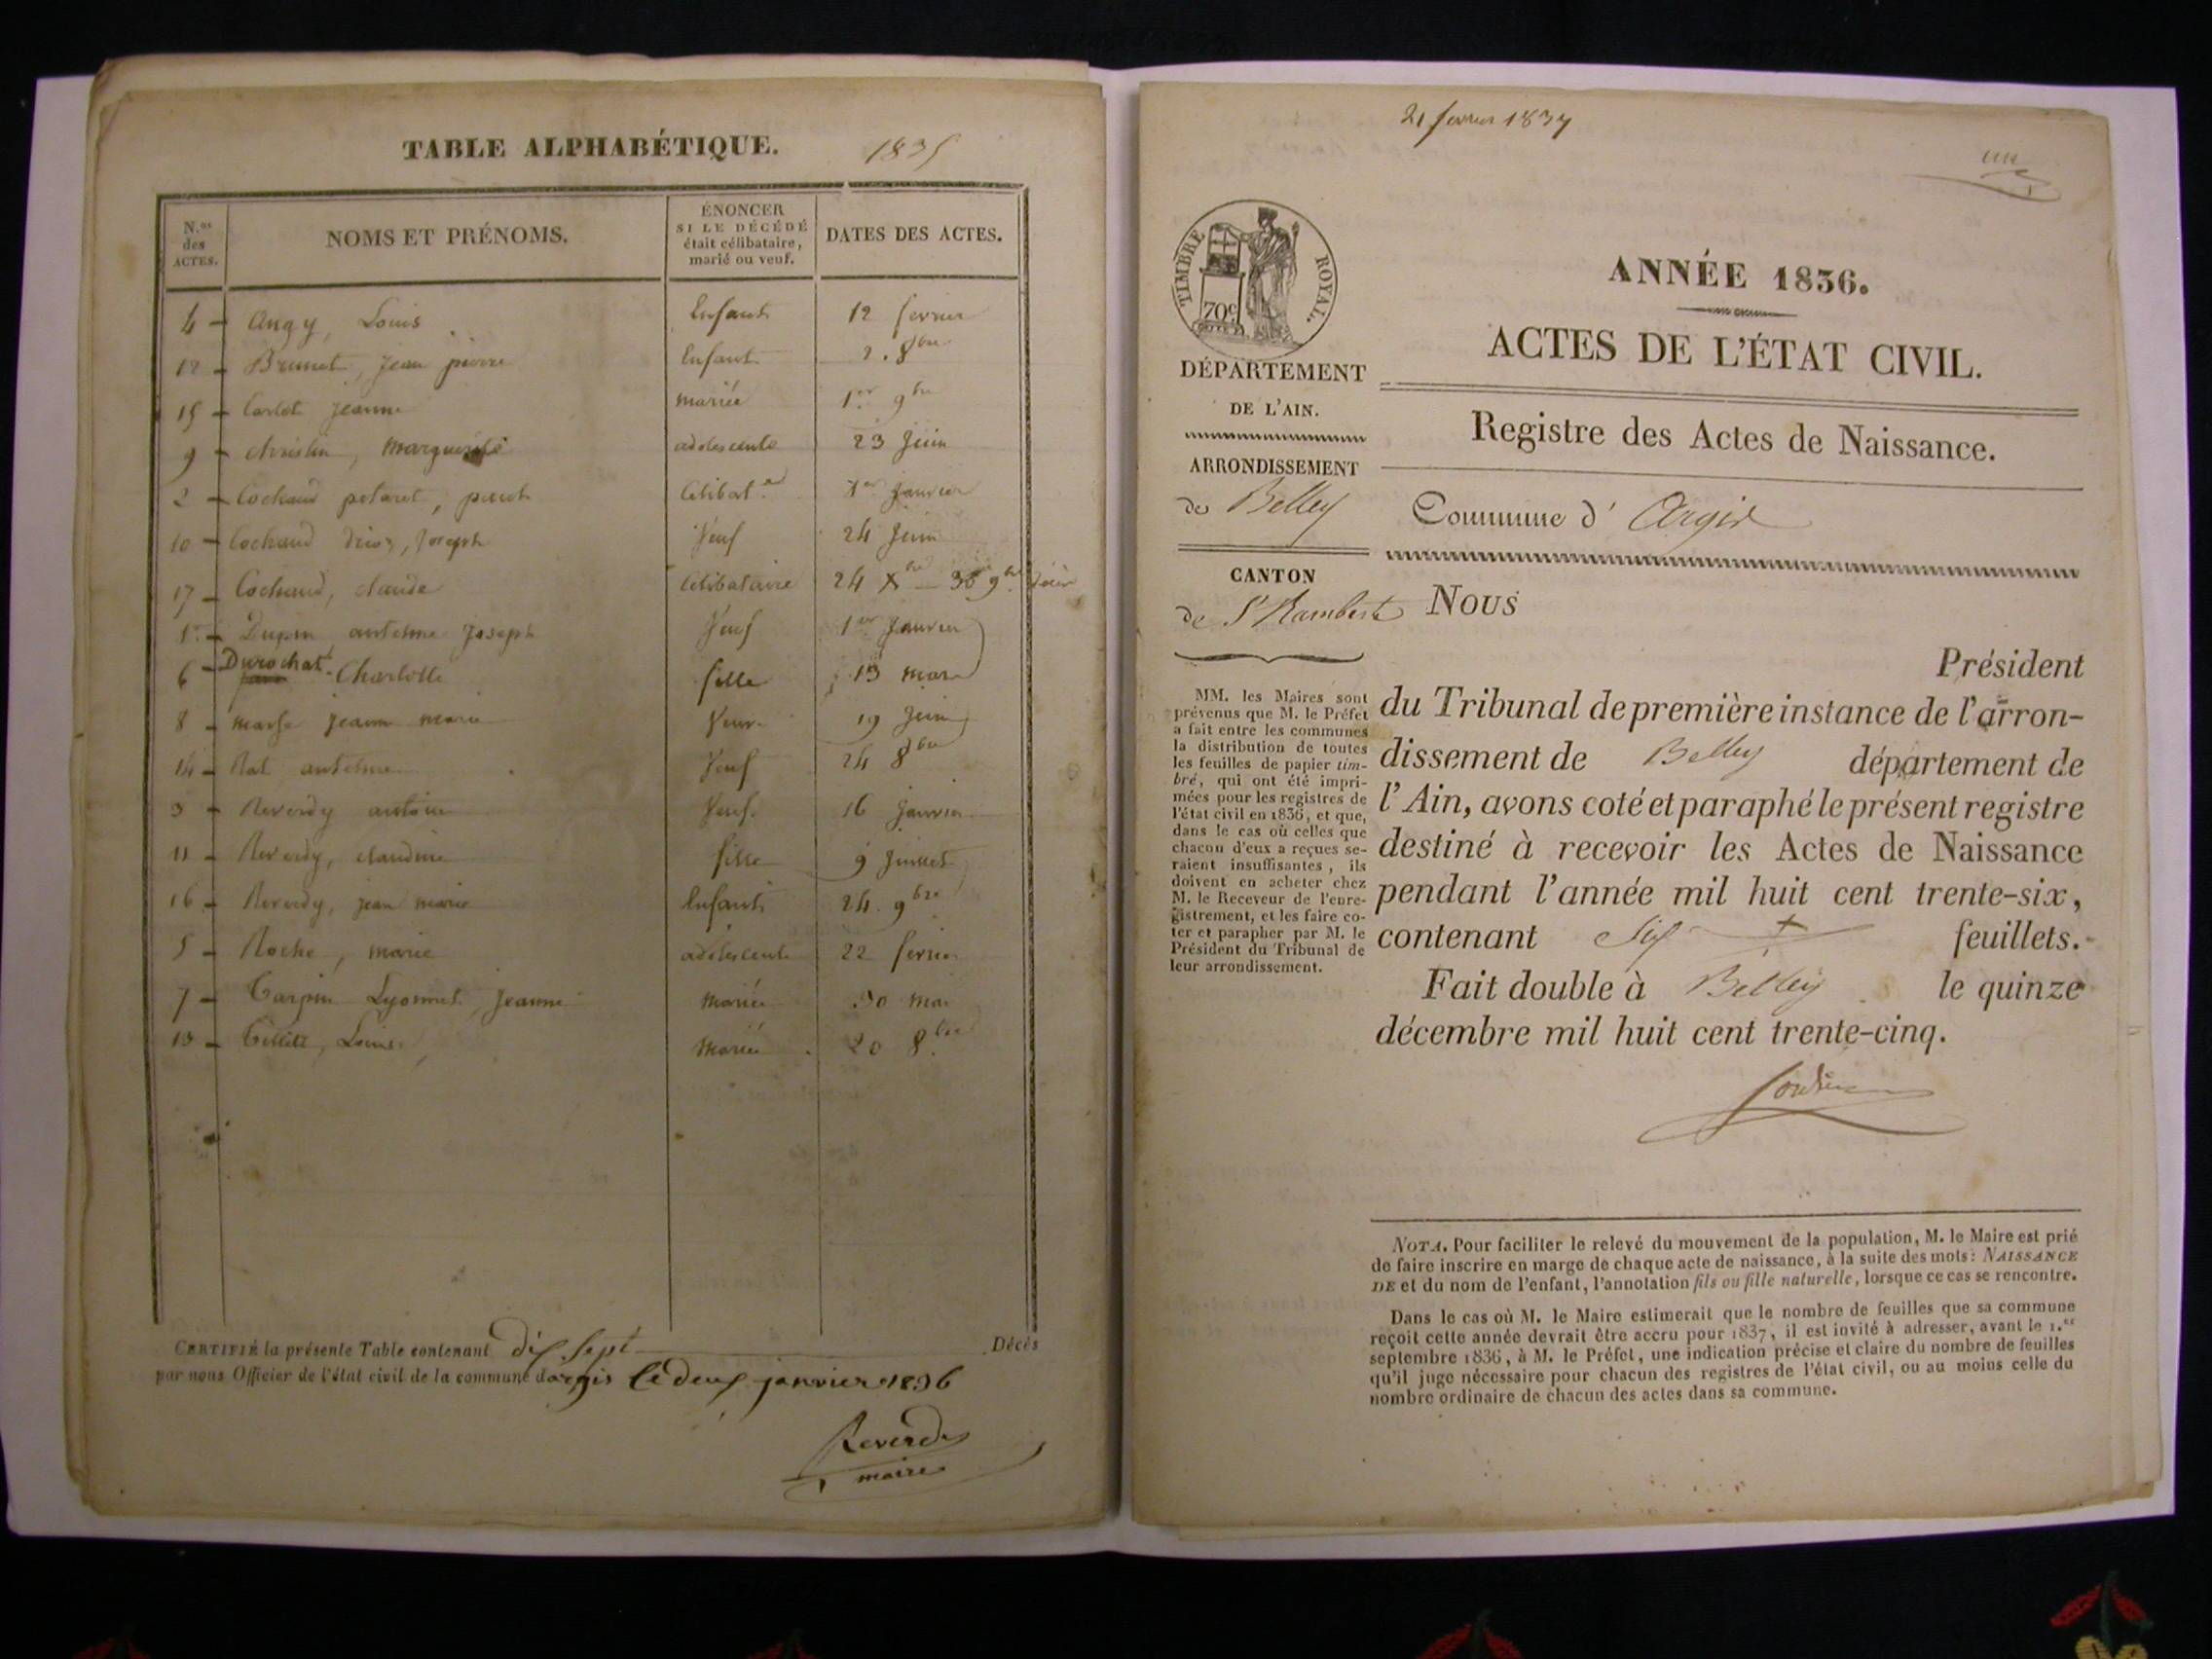 TABLE ALPHABÉTIQUE. 1835
N.os des ACTES.
NOMS ET PRÉNOMS.
ÉNONCER
SI LE DÉCÉDÉ
était célibataire,
marié ou veuf.
DATES DES ACTES.
4 - Louis Enfant 12 fevrier
12 - Brunet, jean pierre Enfant 2. 8bre
15 - jeanne mariée 1er 9bre
9 - christin, marguerite adolescente 23 Juin
2 - Cochaud petaret, Celibat.re 1er janvier
10 - Cochaud Joseph Veuf 24 Juin
17 - Cochaud, claude Celibataire 24 Xbre
1er - Dupin antelme Joseph Veuf 1er Janvier
6 - Durochat Charlotte fille 13 mars
8 - jeanne marie Veuve 19 Juin
14 - Rat antelme Veuf 24 8bre
3 - Reverdy antoine Veuf 16 janvier
11 - Reverdy, claudine fille 9 Juillet
16 - Reverdy, jean marie Enfant 24. 9bre
5 - Roche, marie adolescente 22 fevrier
7 - Carpin Lyonnet, Jeanne Mariée 30 mai
13 - Louis 20 8bre
CERTIFIÉ la présente Table contenant dix sept Décès
par nous Officier de l'état civil de la commune dargis le deux janvier 1836
Reverdy
maire
21 fevrier 1837
un
TIMBRE ROYAL.
70c
DÉPARTEMENT
DE L'AIN.
ARRONDISSEMENT
de Belley
CANTON
de St Rambert
MM. les Maires sont
prévenus que M. le Préfet
a fait entre les communes
la distribution de toutes
les feuilles de papier tim-
bré, qui ont été impri-
mées pour les registres de
l'état civil en 1836, et que,
dans le cas où celles que
chacun d'eux a reçues se-
raient insuffisantes, ils
doivent en acheter chez
M. le Receveur de l'enre-
gistrement, et les faire co-
ter et parapher par M. le
Président du Tribunal de
leur arrondissement.
ANNÉE 1836.
ACTES DE L'ÉTAT CIVIL.
Registre des Actes de Naissance.
Commune d' Argis
NOUS
Président
du Tribunal de première instance de l'arron-
dissement de Belley département de
l'Ain, avons coté et paraphé le présent registre
destiné à recevoir les Actes de Naissance
pendant l'année mil huit cent trente-six,
contenant Six feuillets.
Fait double à Belley le quinze
décembre mil huit cent trente-cinq.
NOTA. Pour faciliter le relevé du mouvement de la population, M. le Maire est prié
de faire inscrire en marge de chaque acte de naissance, à la suite des mots: NAISSANCE
DE et du nom de l'enfant, l'annotation fils ou fille naturelle, lorsque ce cas se rencontre.
Dans le cas où M. le Maire estimerait que le nombre de feuilles que sa commune
reçoit cette année devrait être accru pour 1837, il est invité à adresser, avant le 1.er
septembre 1836, à M. le Préfet, une indication précise et claire du nombre de feuilles
qu'il juge nécessaire pour chacun des registres de l'état civil, ou au moins celle du
nombre ordinaire de chacun des actes dans sa commune.